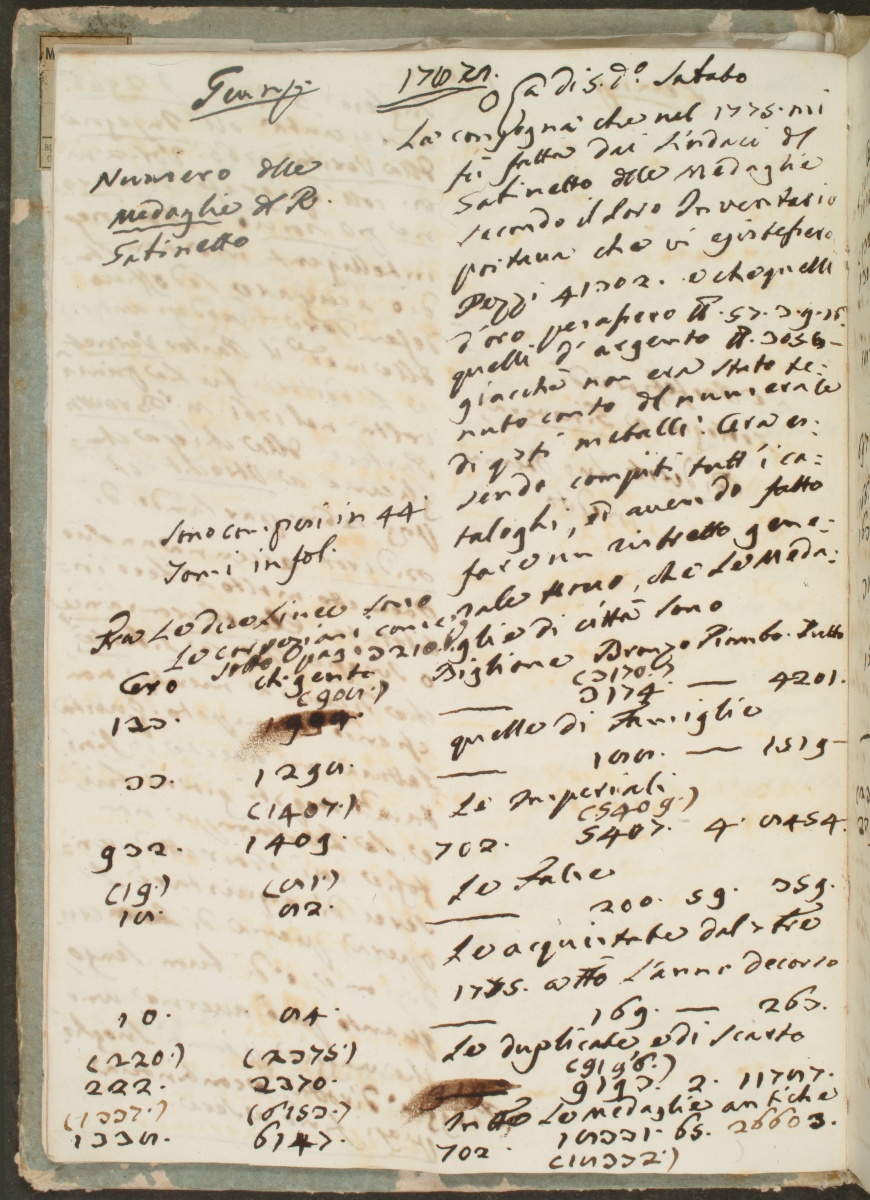 1778.
O Sa di S. d.º Sabato
Numero delle
Medaglie del R.
Gabinetto
La consegna che nel 1775. mi
fù fatta dai Sindaci del
Gabinetto delle Medaglie
secondo il loro Inventario
portava che vi esistessero
Pezzi 41302. e che quelli
d'oro pesassero
quelli d'argento
giacchè non era stato te:
nuto conto del numerale
di q.sti metalli. Ora es:
sendo compiti tutt'i ca:
taloghi, ed avendo fatto
fare un ristretto gene:
rale trovo, che le Meda:
glie di città sono
Sono compresi in 44
Tomi in fol.
Fra le due linee sono
le correzioni come
sotto pag. 3210.
Oro Argento Biglione Bronzo Piombo Tutto
(908.) (3170.)
123. 904. — 3174. — 4201.
quelle di Famiglie
33. 1298. — 188. — 1519
Le Imperiali
(1407.) (5409.)
932. 1409. 702. 5407. 4. 8454.
Le False
(19.) (81.)
18. 82. — 200. 59. 359.
Le acquistate dal
1775. a tutto l'anno decorso
10. 84. — 169. — 263.
Le duplicate e di scarto
(220.) (2375.) (9196.)
222. 2370. 9193. 2. 11787.
In tutto le Medaglie antiche
(1337.) (6153.)
1338. 6147. 702. 18331. 65. 26603.
(18332.)